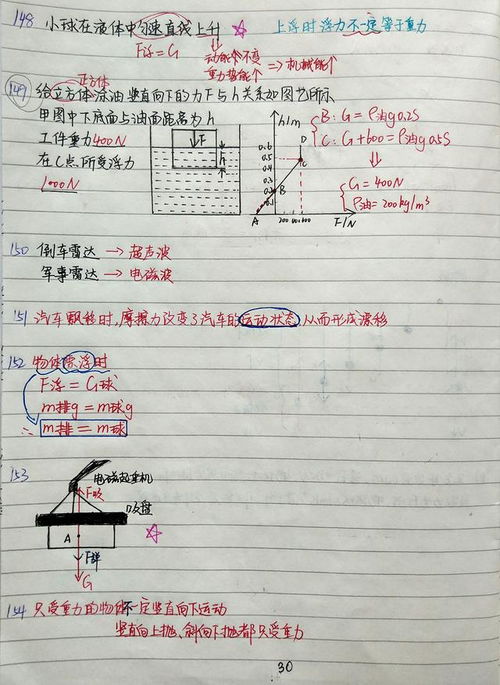 148 小球在液体中匀速直线上升 上浮时浮力不一定等于重力
F浮=G 动能不变
重力势能↑ ⇒ 机械能↑
正方体
149 给立方体涂油竖直向下的力F与h关系如图乙所示
甲图中下底面与油面距离为h
工件重力400N
在C点所受浮力
1000N
F
h
h/m
0.6
0.5
0.4
0.3
0.2
0.1
D
C
B
A
200 400 600
F/N
B: G=ρ油g0.2S
C: G+600=ρ油g0.5S
G=400N
ρ油=200kg/m³
150 倒车雷达 → 超声波
军事雷达 → 电磁波
151 汽车飘移时,摩擦力改变了汽车的运动状态 从而形成漂移
152 物体漂浮时
F浮=G球
m排g=m球g
∴ m排=m球
153
电磁起重机
F吸
吸盘
A
F弹
G
154 只受重力的物体不一定竖直向下运动
竖直向上抛、斜向下抛都只受重力
30